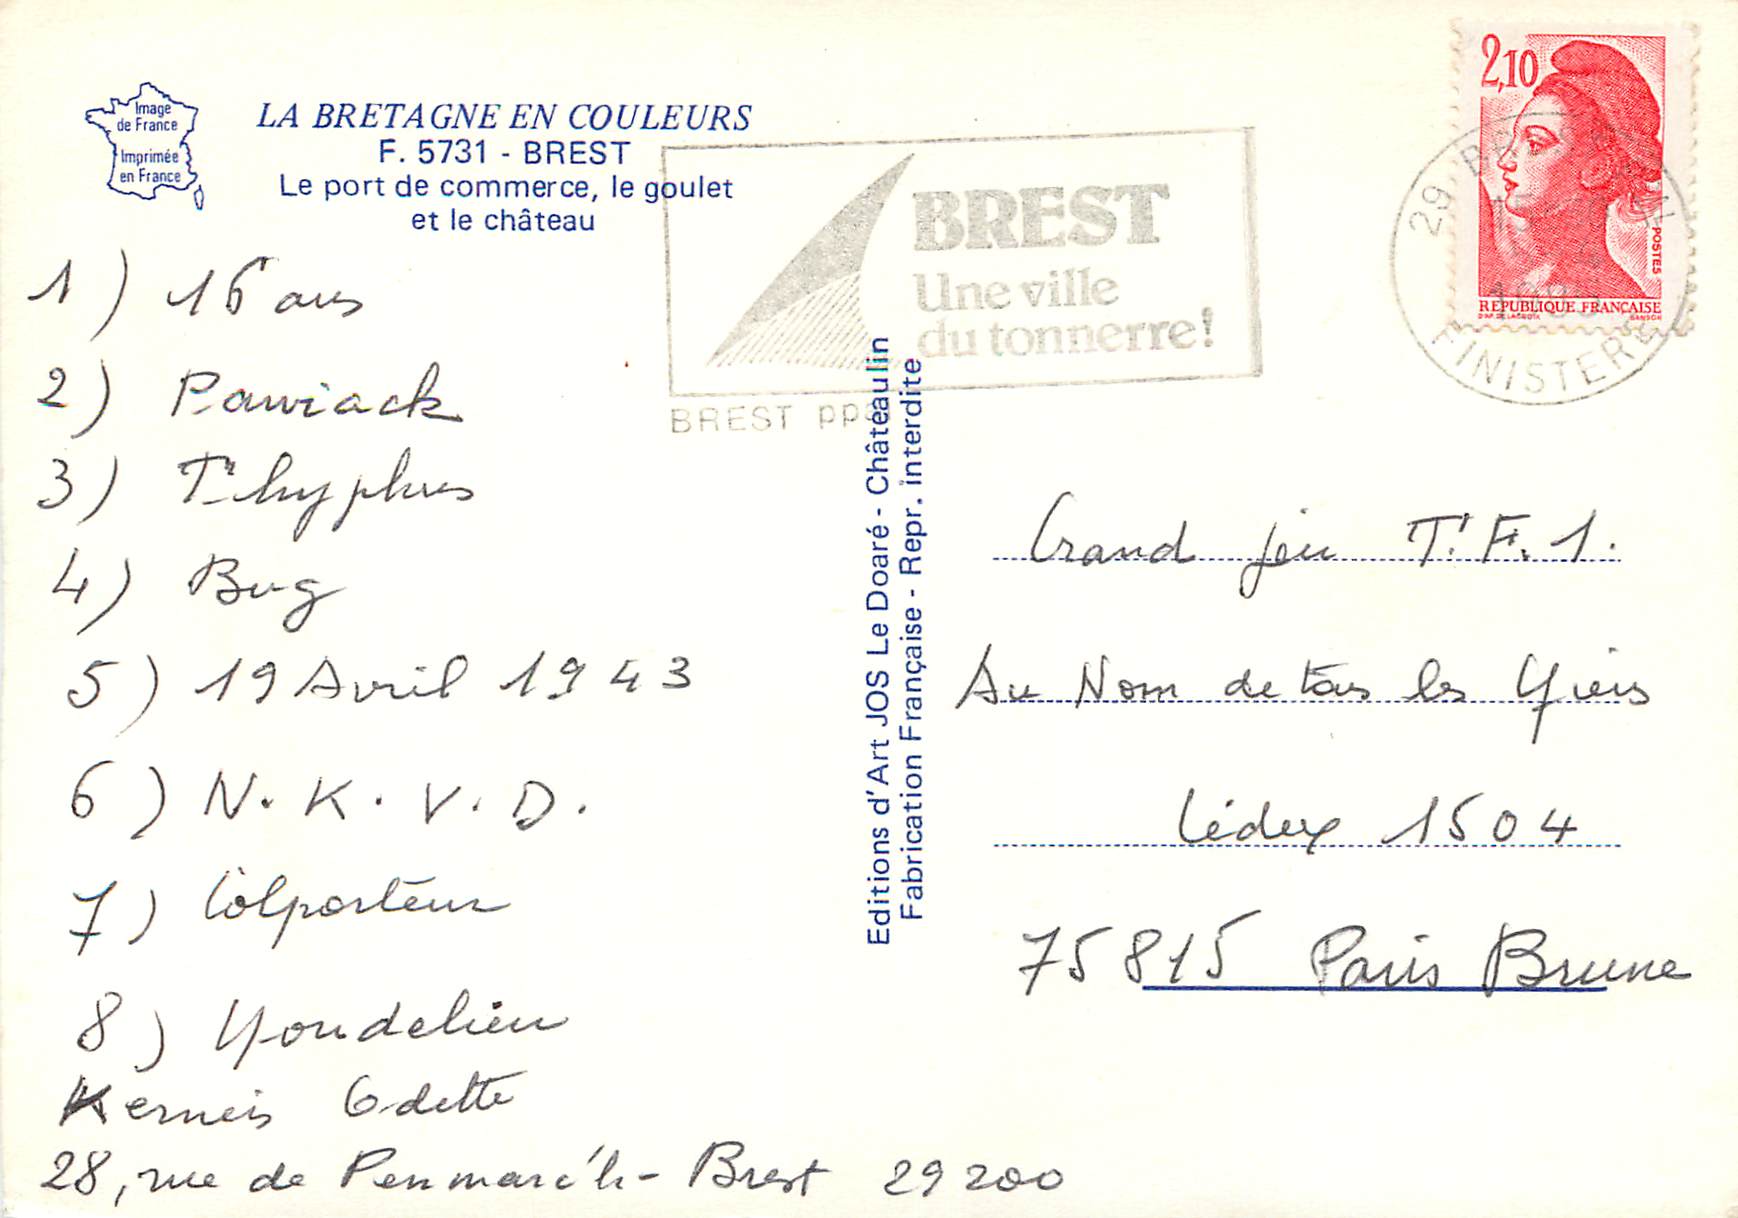 Image
de France
Imprimée
en France
LA BRETAGNE EN COULEURS
F. 5731 - BREST
Le port de commerce, le goulet
et le château
1) 16 ans
2) Pawiack
3) Thyphus
4) Bug
5) 19 Avril 1943
6) N.K.V.D.
7) Colporteur
8) Yondelieu
Kerneis Odette
28, rue de Penmarc'h - Brest 29200
BREST
Une ville
du tonnerre!
BREST PPAL
Editions d'Art JOS Le Doaré - Châteaulin
Fabrication Française - Repr. interdite
2,10
POSTES
REPUBLIQUE FRANÇAISE
D'AP. DELACROIX GANDON
29
FINISTERE
Grand jeu T.F.1.
Au Nom de tous les Miens
Cédex 1504
75815 Paris Brune